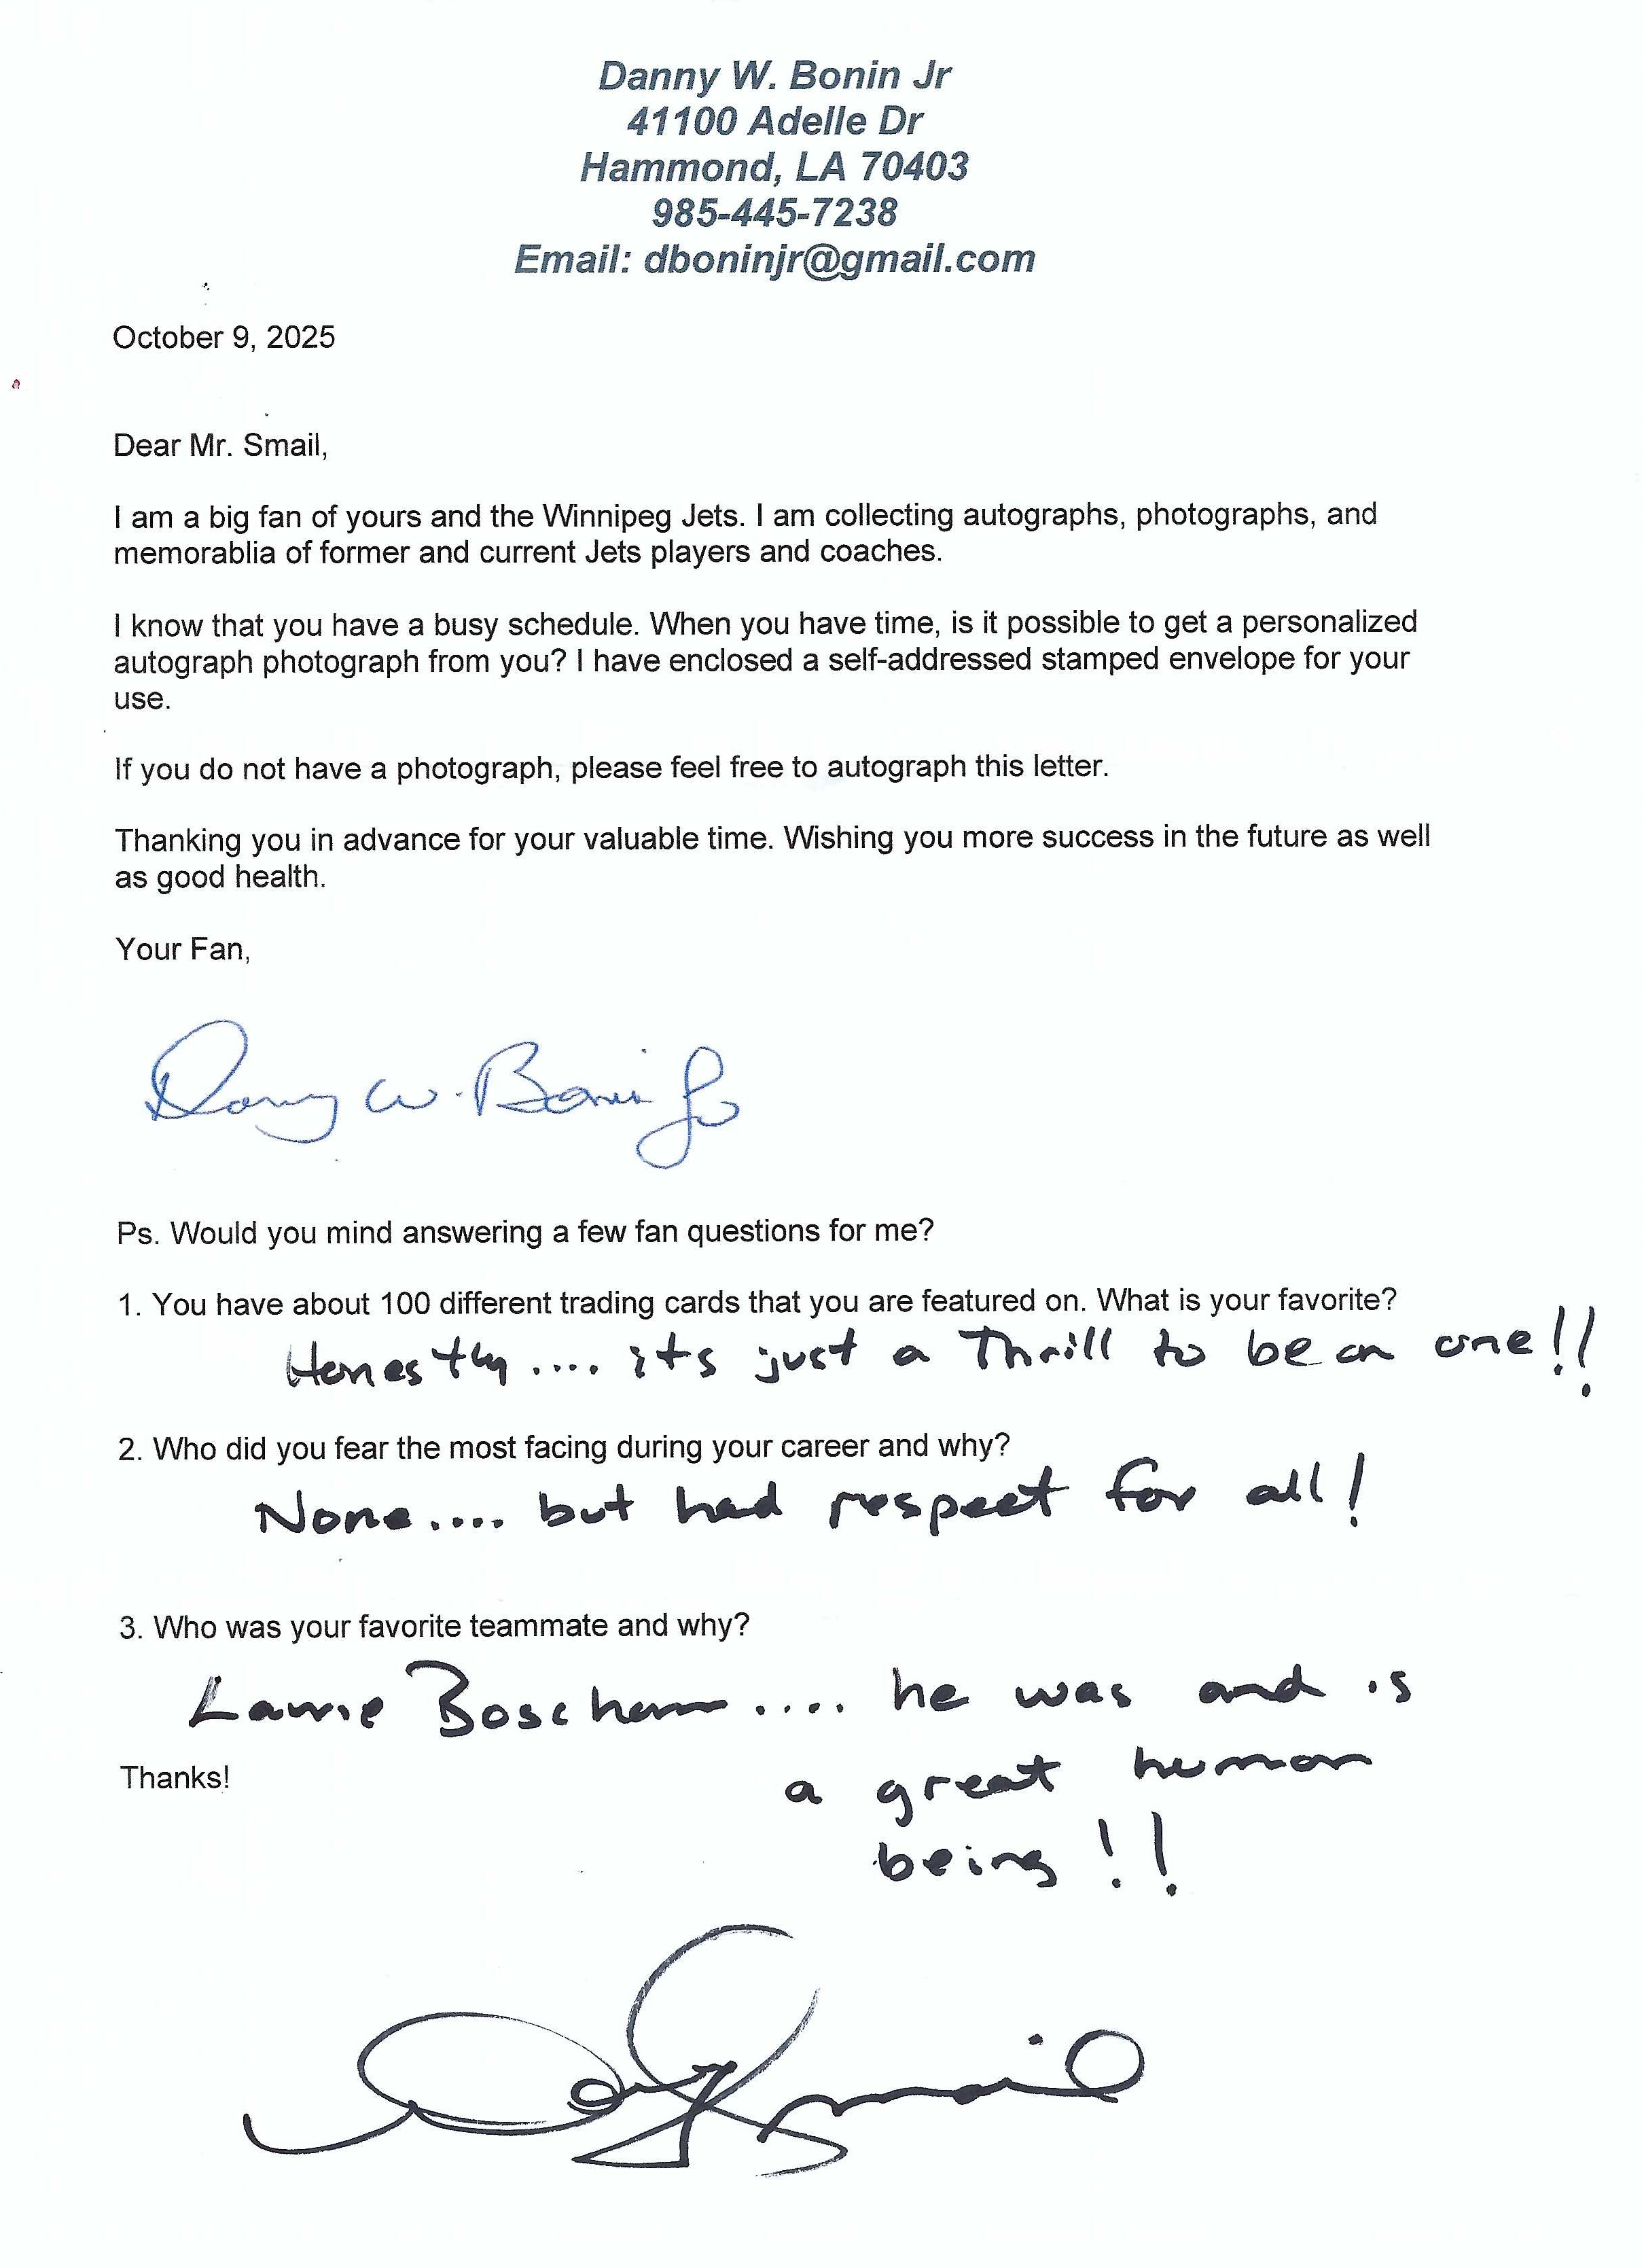 Danny W. Bonin Jr
41100 Adelle Dr
Hammond, LA 70403
985-445-7238
Email: dboninjr@gmail.com
October 9, 2025
Dear Mr. Smail,
I am a big fan of yours and the Winnipeg Jets. I am collecting autographs, photographs, and
memorablia of former and current Jets players and coaches.
I know that you have a busy schedule. When you have time, is it possible to get a personalized
autograph photograph from you? I have enclosed a self-addressed stamped envelope for your
use.
If you do not have a photograph, please feel free to autograph this letter.
Thanking you in advance for your valuable time. Wishing you more success in the future as well
as good health.
Your Fan,
Danny W. Bonin Jr
Ps. Would you mind answering a few fan questions for me?
1. You have about 100 different trading cards that you are featured on. What is your favorite?
Honestly.... its just a Thrill to be on one!!
2. Who did you fear the most facing during your career and why?
None.... but had respect for all!
3. Who was your favorite teammate and why?
Laurie Boschman.... he was and is
Thanks!
a great human
being!!
Doug Smail